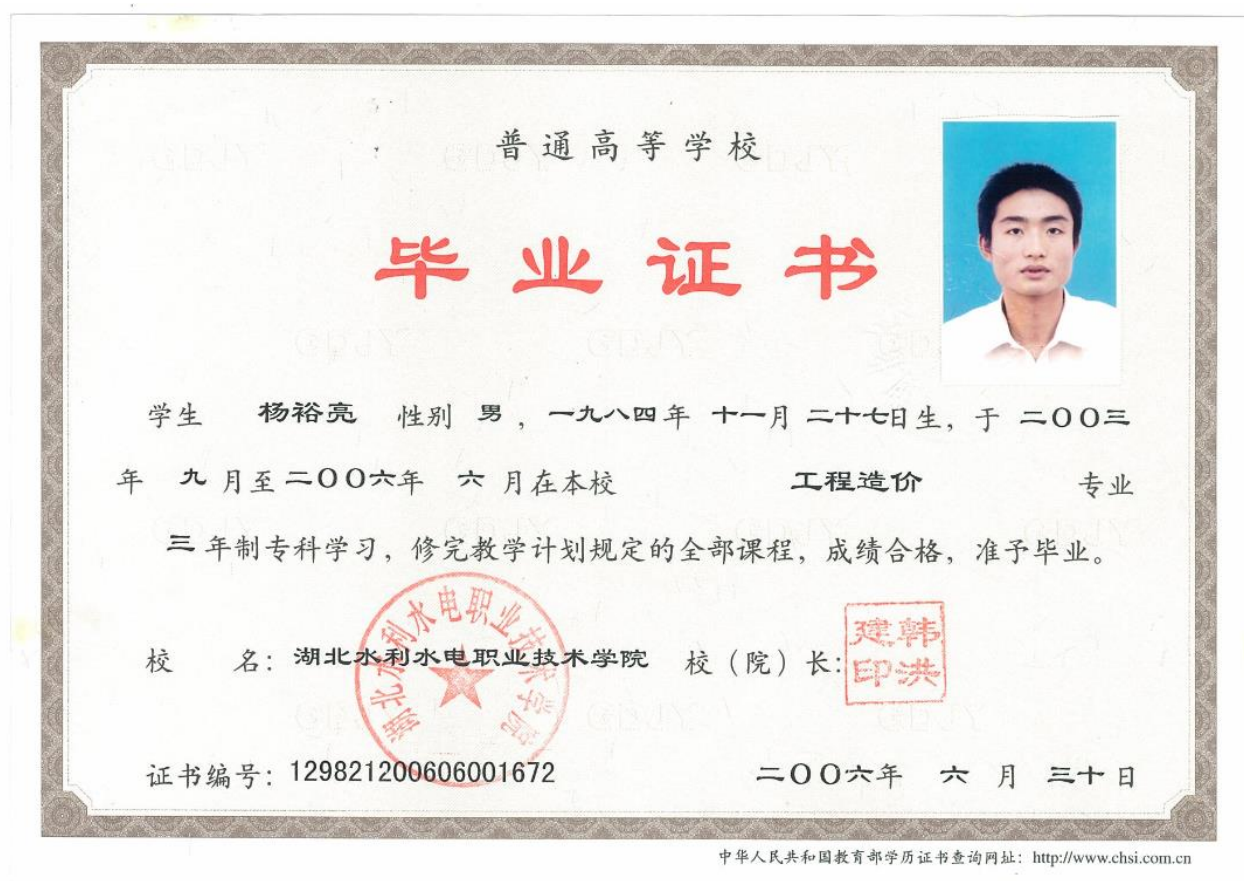 普通高等学校
毕业证书
学生 杨裕亮 性别 男，一九八四年 十一月 二十七日生，于 二OO三
年 九 月至二OO六年 六 月在本校 工程造价 专业
三 年制专科学习，修完教学计划规定的全部课程，成绩合格，准予毕业。
湖北水利水电职业技术学院
校 名：湖北水利水电职业技术学院 校（院）长：
韩洪建印
证书编号：129821200606001672 二OO六年 六 月 三十日
中华人民共和国教育部学历证书查询网址：http://www.chsi.com.cn